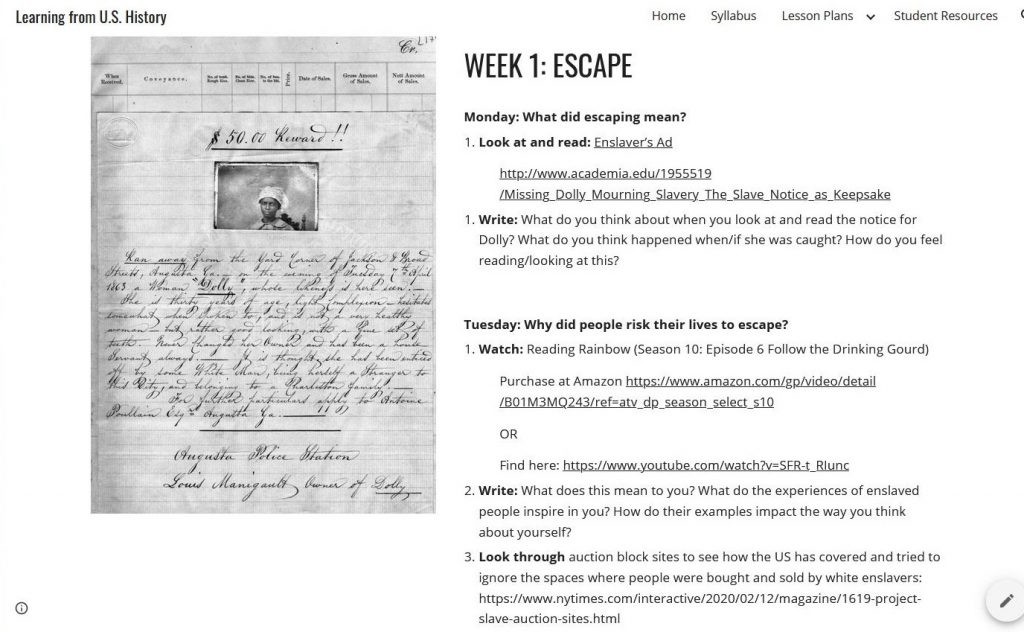 Learning from U.S. History
Home Syllabus Lesson Plans Student Resources
When Received. Conveyance. Date of Sales. Gross Amount of Sales. Nett Amount of Sales.
$ 50.00 Reward !!
Ran away from the Yard Corner of Jackson & Broad
Streets, Augusta Ga. — on the evening of Tuesday 7th April
1863 a Woman "Dolly", whose likeness is here seen. —
She is thirty years of age, light complexion — hesitates
somewhat when spoken to, and is not a very healthy
woman — but rather good looking, with a fine set of
teeth. Never changed her Owner and has been a house
Servant always. — It is thought she has been enticed
off by some White Man, being herself a Stranger to
this City, and belonging to a Charleston family. —
For further particulars apply to Antoine
Poullain Esqr Augusta Ga. —
Augusta Police Station
Louis Manigault Owner of Dolly
WEEK 1: ESCAPE
Monday: What did escaping mean?
1. Look at and read: Enslaver's Ad
http://www.academia.edu/1955519
/Missing_Dolly_Mourning_Slavery_The_Slave_Notice_as_Keepsake
1. Write: What do you think about when you look at and read the notice for
Dolly? What do you think happened when/if she was caught? How do you feel
reading/looking at this?
Tuesday: Why did people risk their lives to escape?
1. Watch: Reading Rainbow (Season 10: Episode 6 Follow the Drinking Gourd)
Purchase at Amazon https://www.amazon.com/gp/video/detail
/B01M3MQ243/ref=atv_dp_season_select_s10
OR
Find here: https://www.youtube.com/watch?v=SFR-t_RIunc
2. Write: What does this mean to you? What do the experiences of enslaved
people inspire in you? How do their examples impact the way you think
about yourself?
3. Look through auction block sites to see how the US has covered and tried to
ignore the spaces where people were bought and sold by white enslavers:
https://www.nytimes.com/interactive/2020/02/12/magazine/1619-project-
slave-auction-sites.html